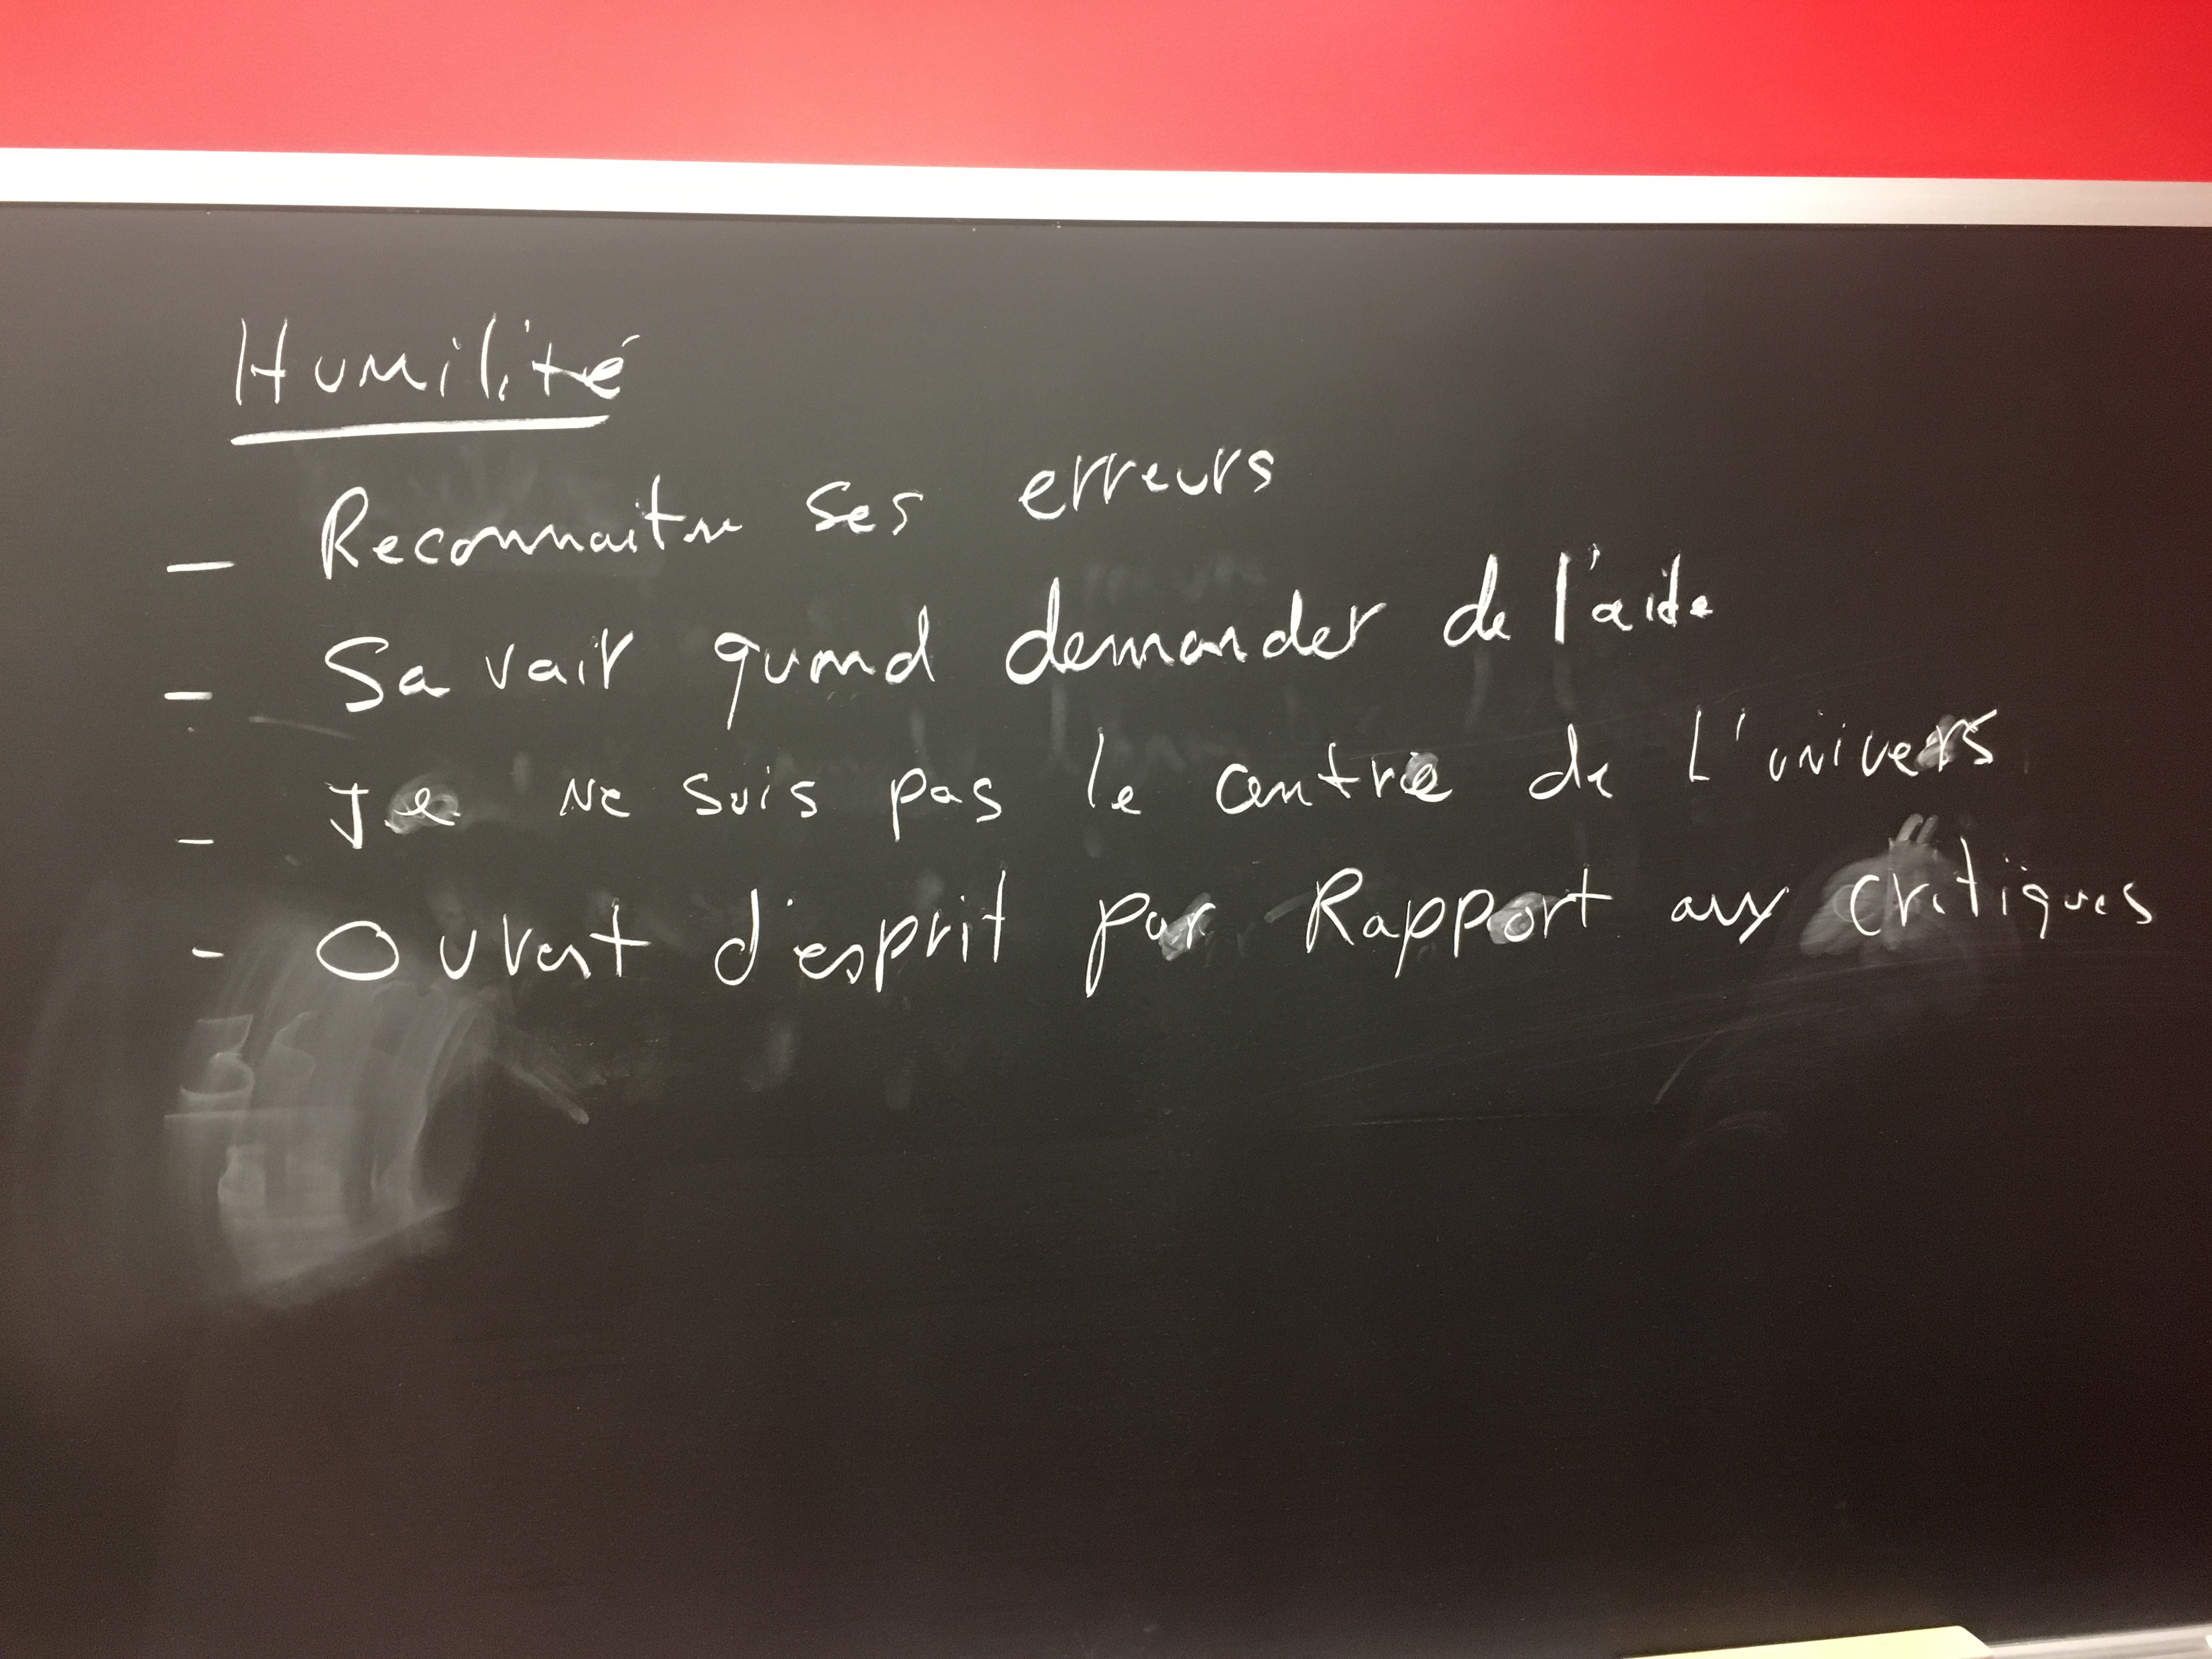 Humilité
- Reconnaitre ses erreurs
- Savoir quand demander de l'aide
- Je ne suis pas le centre de L'univers
- Ouvert d'esprit par Rapport aux critiques